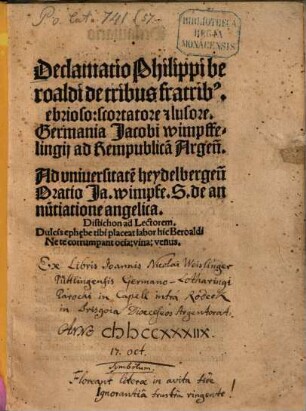 BIBLIOTHECA
REGIA
MONACENSIS
Declamatio Philippi be
roaldi de tribus fratribꝰ.
ebrioso: scortatore ⁊ lusore.
Germania Jacobi wimpffe-
lingij ad Rempublicā Argeñ.
Ad uniuersitatē heydelbergeñ
Oratio Ja. wimpfe. S. de an
nūtiatione angelica.
Distichon ad Lectorem.
Dulcis ephebe tibi placeat labor hic Beroaldi
Ne te corrumpant ocia; vina; venus.
Ex Libris Joannis Nicolai Weislinger
Püttlingensis Germano-Lotharingi
Parochi in Capell infra Rodeck
in Brisgoia Dioeceseos Argentorati.
17. oct.
Symbolum.
Floreant literae in avita fide
Ignorantiâ frustra ringente!